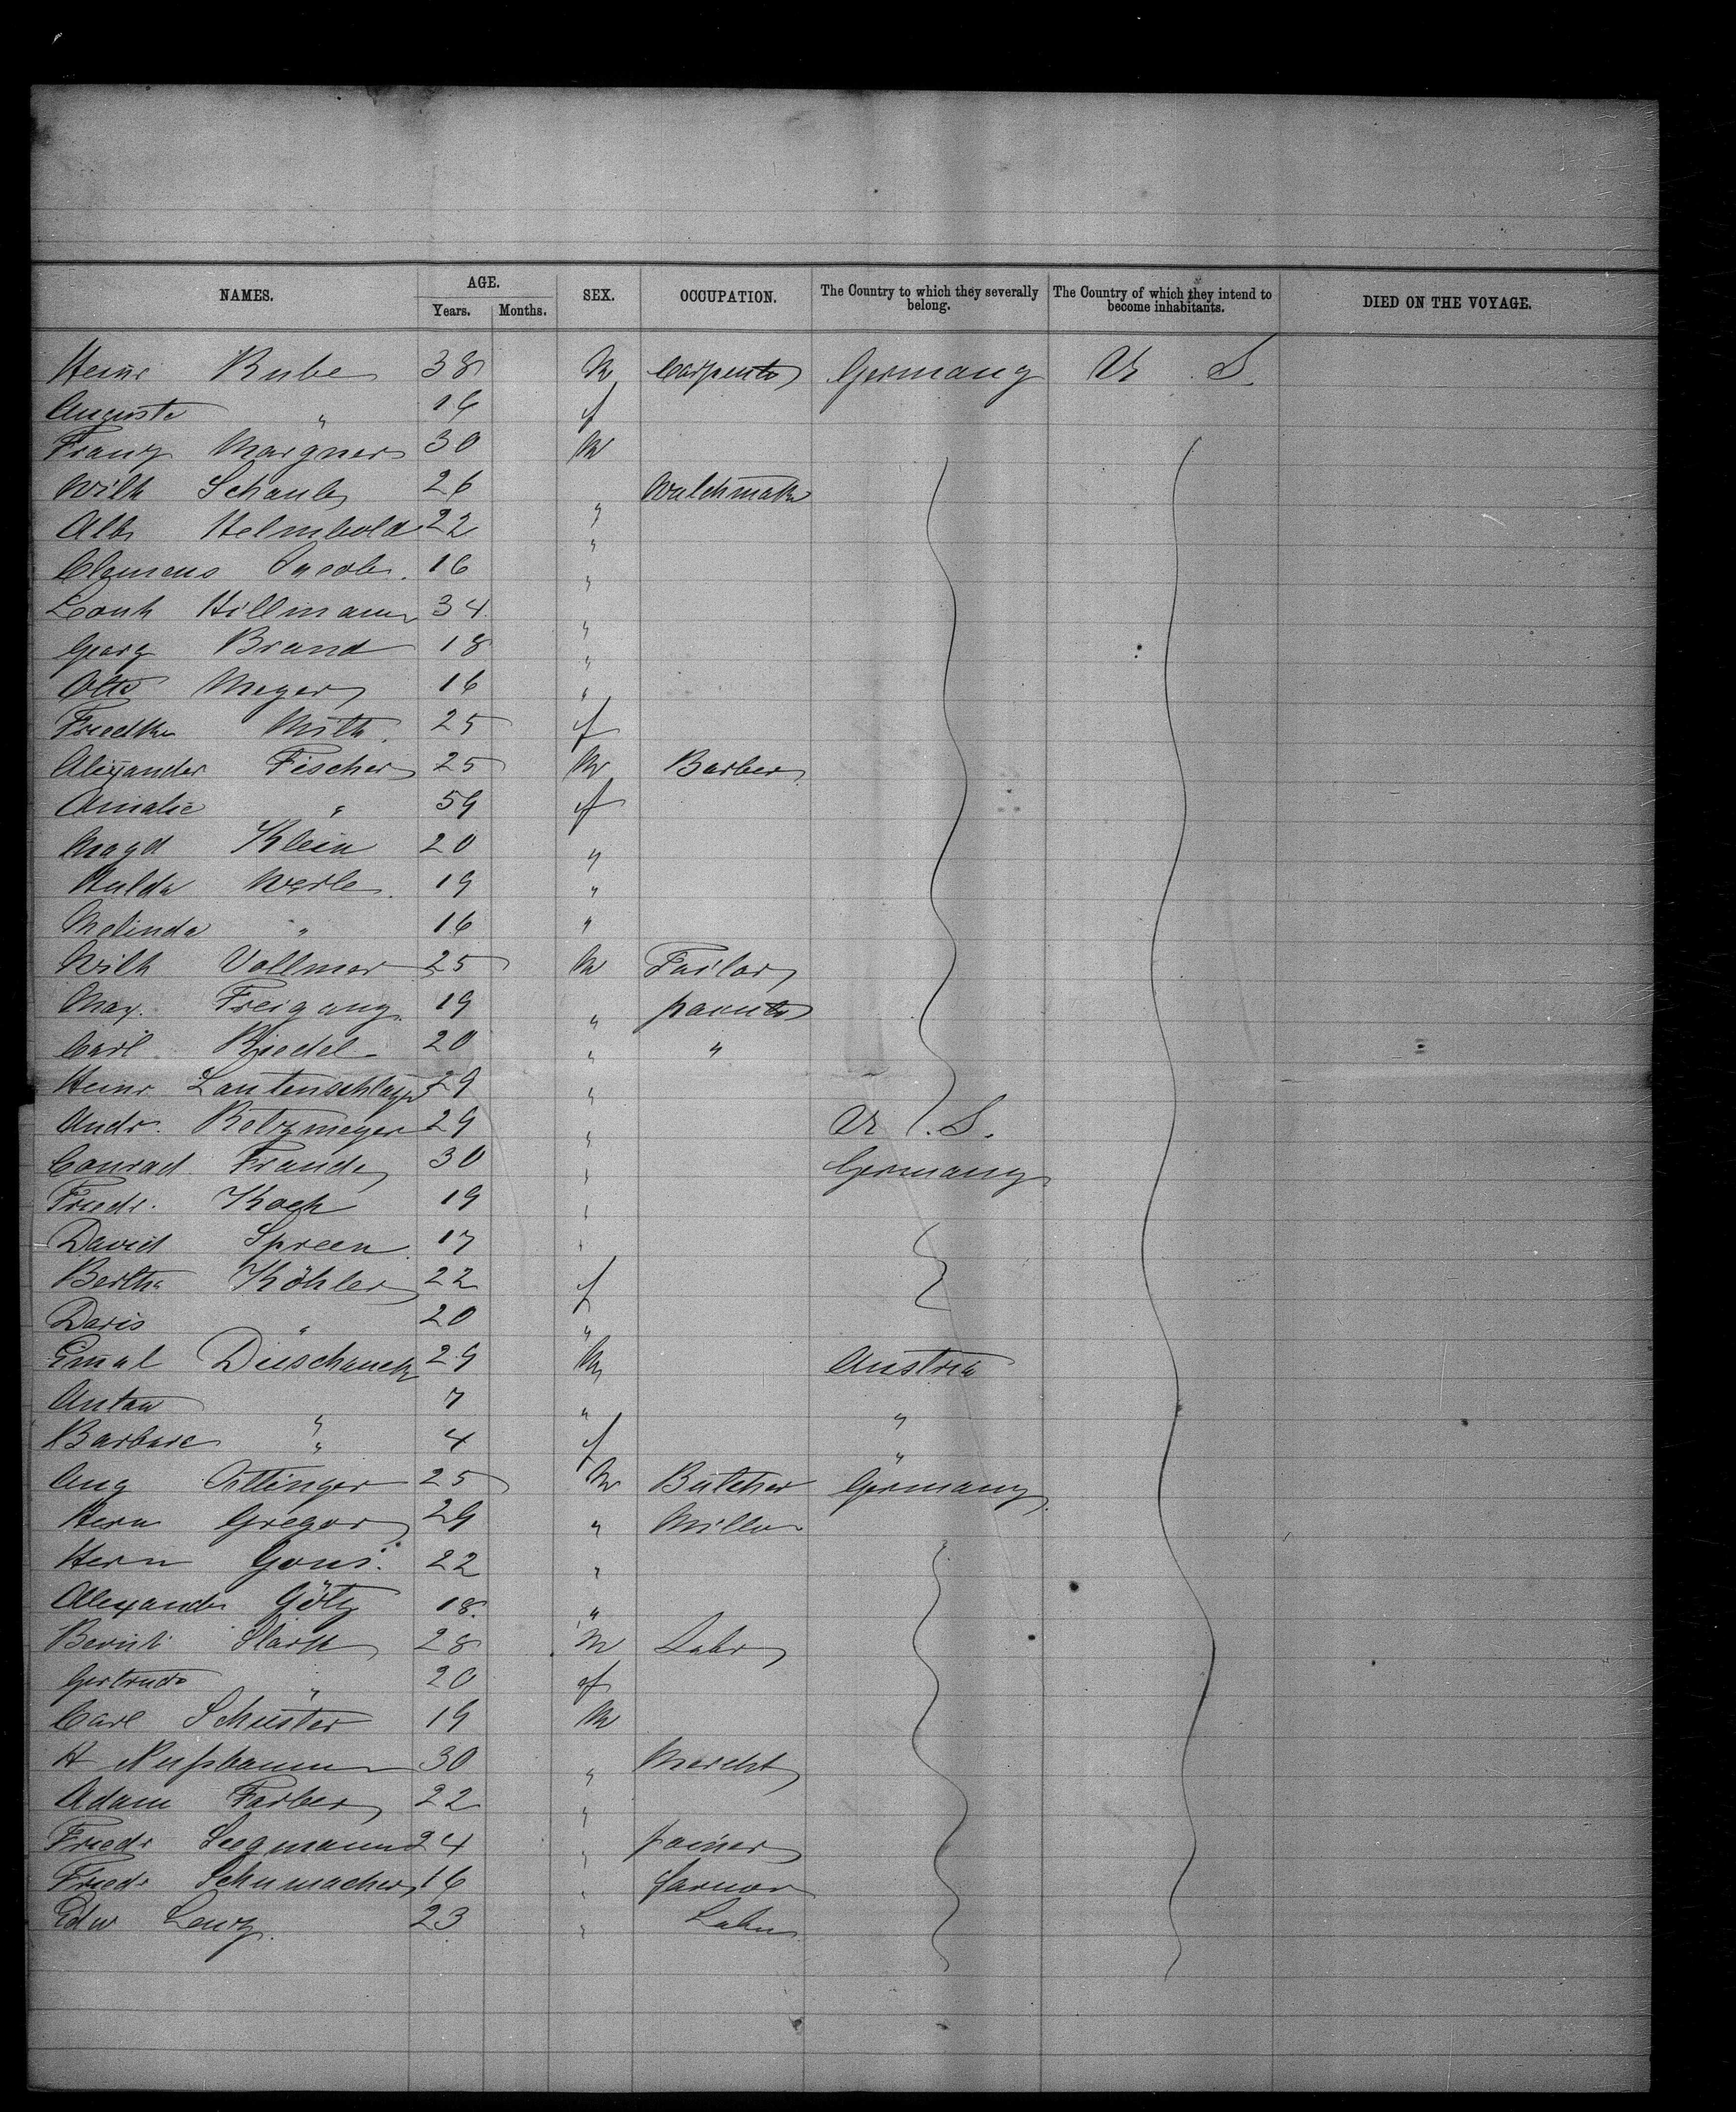 NAMES. AGE. SEX. OCCUPATION. The Country to which they severally belong. The Country of which they intend to become inhabitants. DIED ON THE VOYAGE.
Years. Months.
Heinr Rube 38 M Carpentr Germany U S.
Auguste " 16 f
Franz Margner 30 M
Wilh Schaub 26 " Watchmakr
Alb Helmbold 22 "
Clemens Jacob. 16 "
Leonh Hillmann 34 "
Georg Brand 18 "
Otto Meyer 16 "
Friedke Mith. 25 f
Alexander Fischer 25 M Barber
Amalie " 59 f
Magd Klein 20 "
Hulda Werle 19 "
Melinda " 16 "
Wilh Vollmer 25 M Tailor
Max. Freigang 19 " paintr
Carl Riedel 20 " "
Heinr Lautenschlager 29 "
Andr. Retzmeyer 29 " U.S.
Conrad Frande 30 " Germany
Friedr. Koch 19 "
David Spreen 17 "
Bertha Köhler 22 f
Doris " 20 "
29 M Austria
Anton " 7 " "
Barbara " 4 f "
Aug Ottinger 25 M Butcher Germany
Herm Gregor 29 " Miller
Herm 22 "
Alexander Götz 18. "
Stark 28 M Labr
Gertrude " 20 f
Carl Schuster 19 M
H Nußbaum 30 " Mercht
Adam Farber 22 "
Friedr Seegmann 24 " joiner
Friedr Schumacher 16 " farmer
Edw Lenz. 23 " Labr